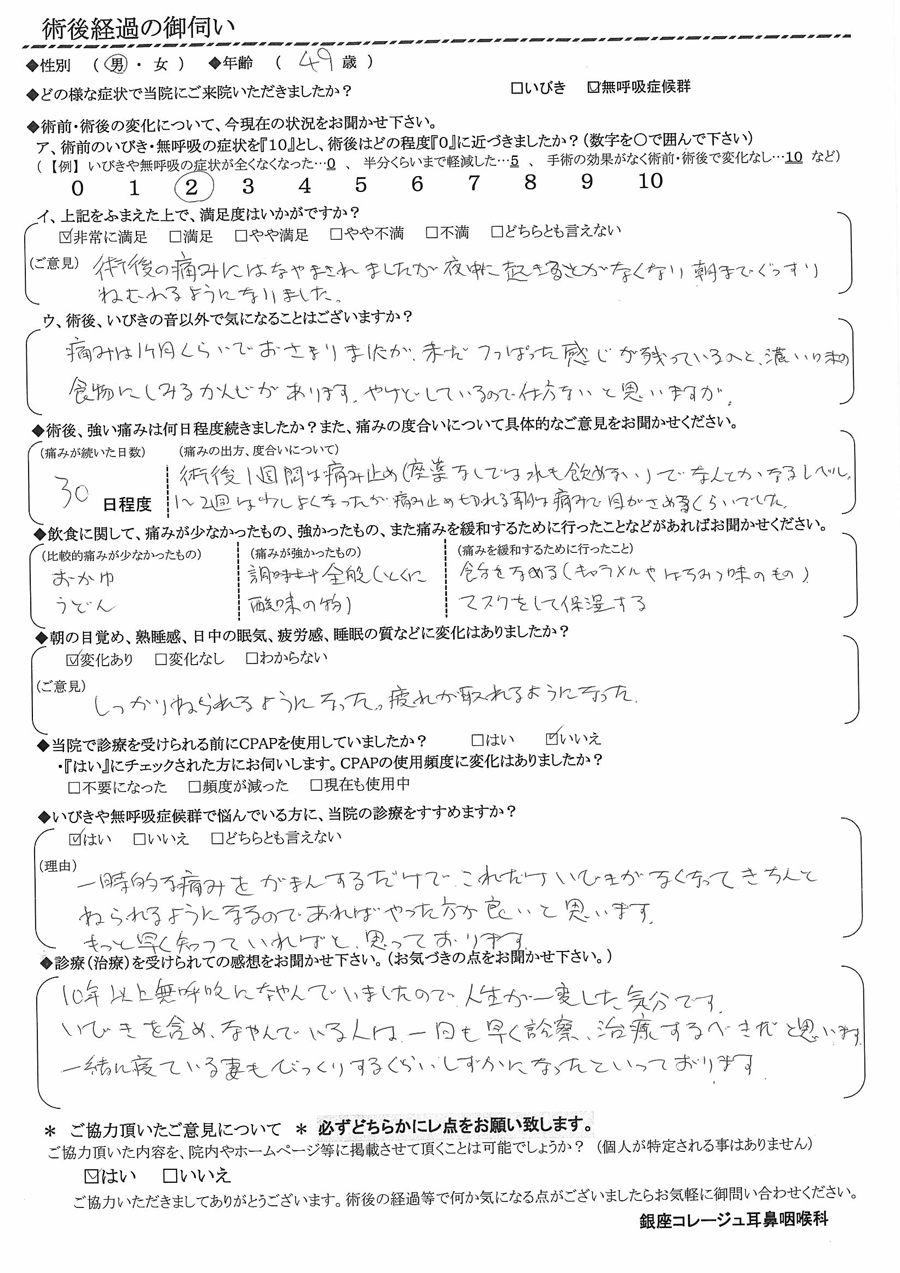 術後経過の御伺い
◆性別 ( 男 ・ 女 ) ◆年齢 ( 49 歳 )
◆どの様な症状で当院にご来院いただきましたか? □いびき ☑無呼吸症候群
◆術前・術後の変化について、今現在の状況をお聞かせ下さい。
ア、術前のいびき・無呼吸の症状を『10』とし、術後はどの程度『0』に近づきましたか?(数字を○で囲んで下さい)
(【例】いびきや無呼吸の症状が全くなくなった…0 、 半分くらいまで軽減した…5 、 手術の効果がなく術前・術後で変化なし…10 など)
0 1 2 3 4 5 6 7 8 9 10
イ、上記をふまえた上で、満足度はいかがですか?
☑非常に満足 □満足 □やや満足 □やや不満 □不満 □どちらとも言えない
(ご意見) 術後の痛みにはなやまされましたが夜中に起きることがなくなり朝までぐっすり
ねむれるようになりました。
ウ、術後、いびきの音以外で気になることはございますか?
痛みは1ヶ月くらいでおさまりましたが、未だつっぱった感じが残っているのと、濃い味の
食物にしみるかんじがあります。やけどしているので仕方ないと思いますが。
◆術後、強い痛みは何日程度続きましたか?また、痛みの度合いについて具体的なご意見をお聞かせください。
(痛みが続いた日数) (痛みの出方、度合いについて)
30 日程度
術後1週間は痛み止め(座薬なしでは水も飲めない)でなんとかなるレベル。
1〜2週は少しよくなったが痛み止め切れる朝は痛みで目がさめるくらいでした。
◆飲食に関して、痛みが少なかったもの、強かったもの、また痛みを緩和するために行ったことなどがあればお聞かせください。
(比較的痛みが少なかったもの) (痛みが強かったもの) (痛みを緩和するために行ったこと)
おかゆ 調味料全般(とくに 飴をなめる(キャラメルやはちみつ味のもの)
うどん 酸味の物) マスクをして保湿する
◆朝の目覚め、熟睡感、日中の眠気、疲労感、睡眠の質などに変化はありましたか?
☑変化あり □変化なし □わからない
(ご意見) しっかりねられるようになった。疲れが取れるようになった。
◆当院で診療を受けられる前にCPAPを使用していましたか? □はい ☑いいえ
・『はい』にチェックされた方にお伺いします。CPAPの使用頻度に変化はありましたか?
□不要になった □頻度が減った □現在も使用中
◆いびきや無呼吸症候群で悩んでいる方に、当院の診療をすすめますか?
☑はい □いいえ □どちらとも言えない
(理由) 一時的な痛みをがまんするだけで、これだけいびきがなくなってきちんと
ねられるようになるのであればやった方が良いと思います。
もっと早く知っていればと、思っております。
◆診療(治療)を受けられての感想をお聞かせ下さい。(お気づきの点をお聞かせ下さい。)
10年以上無呼吸になやんでいましたので、人生が一変した気分です。
いびきを含め、なやんでいる人は、一日も早く診察、治療するべきだと思います。
一緒に寝ている妻もびっくりするくらいしずかになったといっております。
* ご協力頂いたご意見について * 必ずどちらかにレ点をお願い致します。
ご協力頂いた内容を、院内やホームページ等に掲載させて頂くことは可能でしょうか? (個人が特定される事はありません)
☑はい □いいえ
ご協力いただきましてありがとうございます。術後の経過等で何か気になる点がございましたらお気軽に御問い合わせください。
銀座コレージュ耳鼻咽喉科